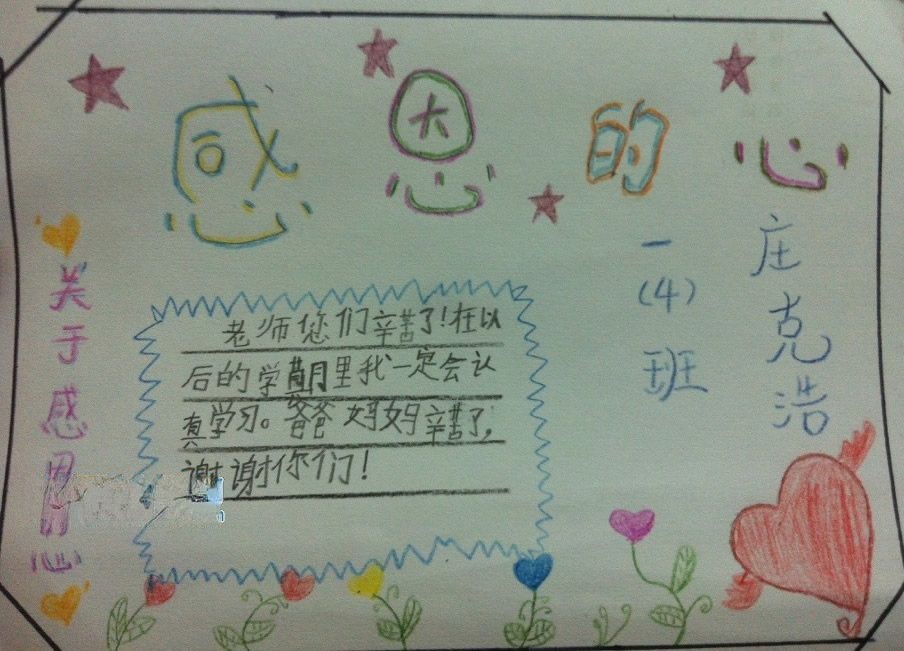 感恩的心
关于感恩的心
老师您们辛苦了!在以
后的学期里我一定会认
真学习。爸爸妈妈辛苦了,
谢谢你们!
一(4)班
庄克浩